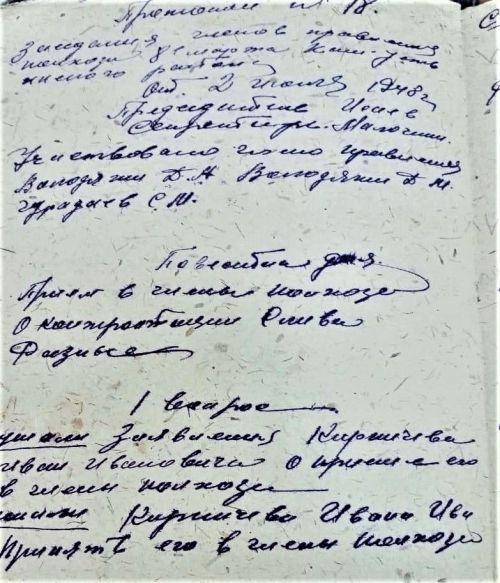 Протокол № 18.
Заседания членов правления
колхоза 8е марта
района
От. 2 июля 1948г
Председатель Исаев
Секретарь. Малочкин.
Участвовало члены правления
Володякин Д.А. Володякин Д.М.
Чурадаев С.М.
Повесть дня.
Прием в члены колхоза
О контрактации Слива
Разные
1 вопрос
ушали Заявления Кирпичева
Иван Ивановича о приеме его
в члены колхоза
Кирпичева Ивана Ива
Принять его в члены колхоза